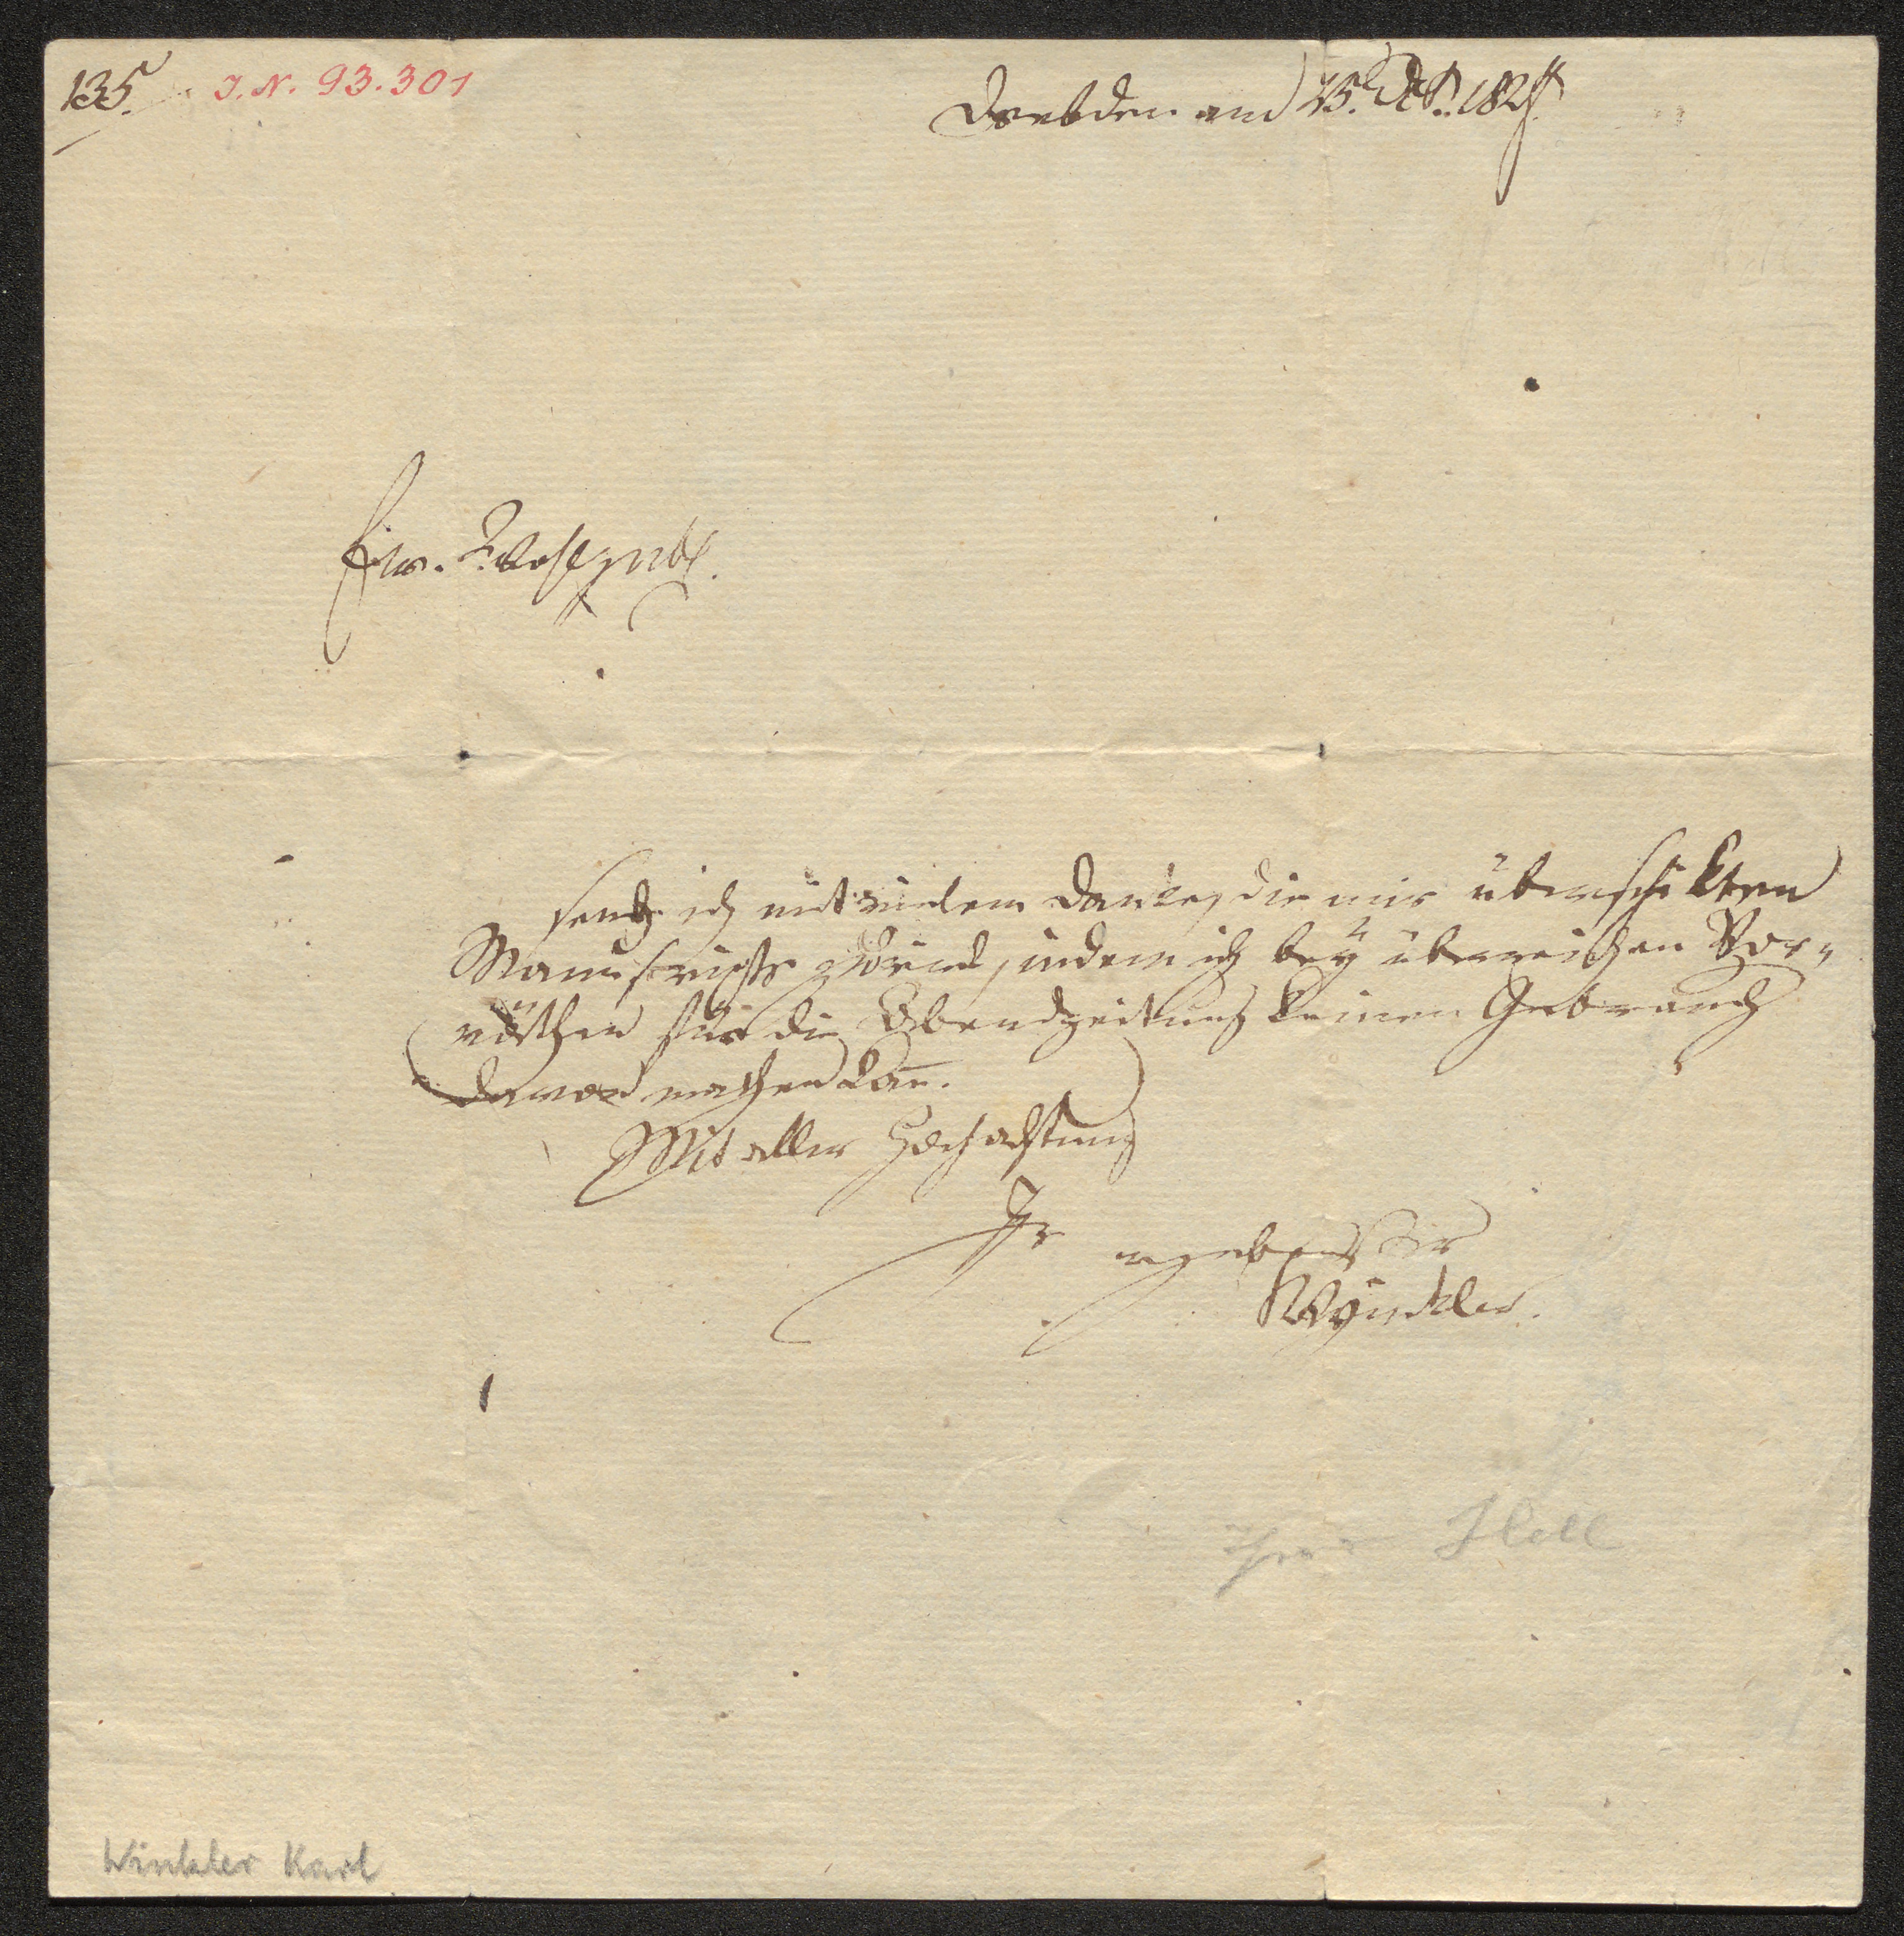 135. I. N. 93.301
Dresden am 25.
Ew. Wohlgeb.
sende ich mit vielem Danke, die mir überschikten
Manuscripte zurück, indem ich bey überreichen Vor-
räthen für die Abendzeitung keinen Gebrauch
davon machen kan̄.
Mit aller Hochachtung
Ihr
ergebenster
Winkler.
Hell
Winkler Karl